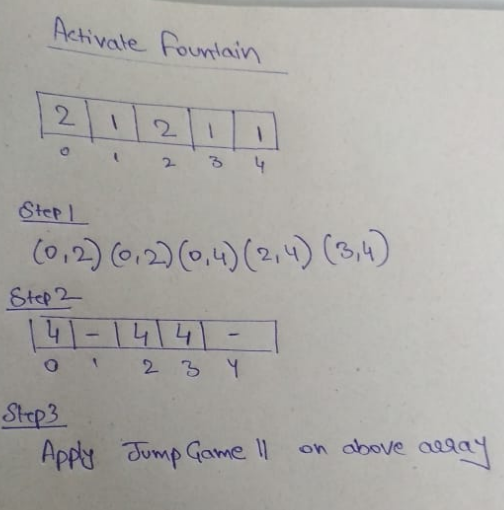 Activate Fountain
2 1 2 1 1
0 1 2 3 4
Step 1
(0,2) (0,2) (0,4) (2,4) (3,4)
Step 2
4 - 4 4 -
0 1 2 3 4
Step3
Apply Jump Game II on above array